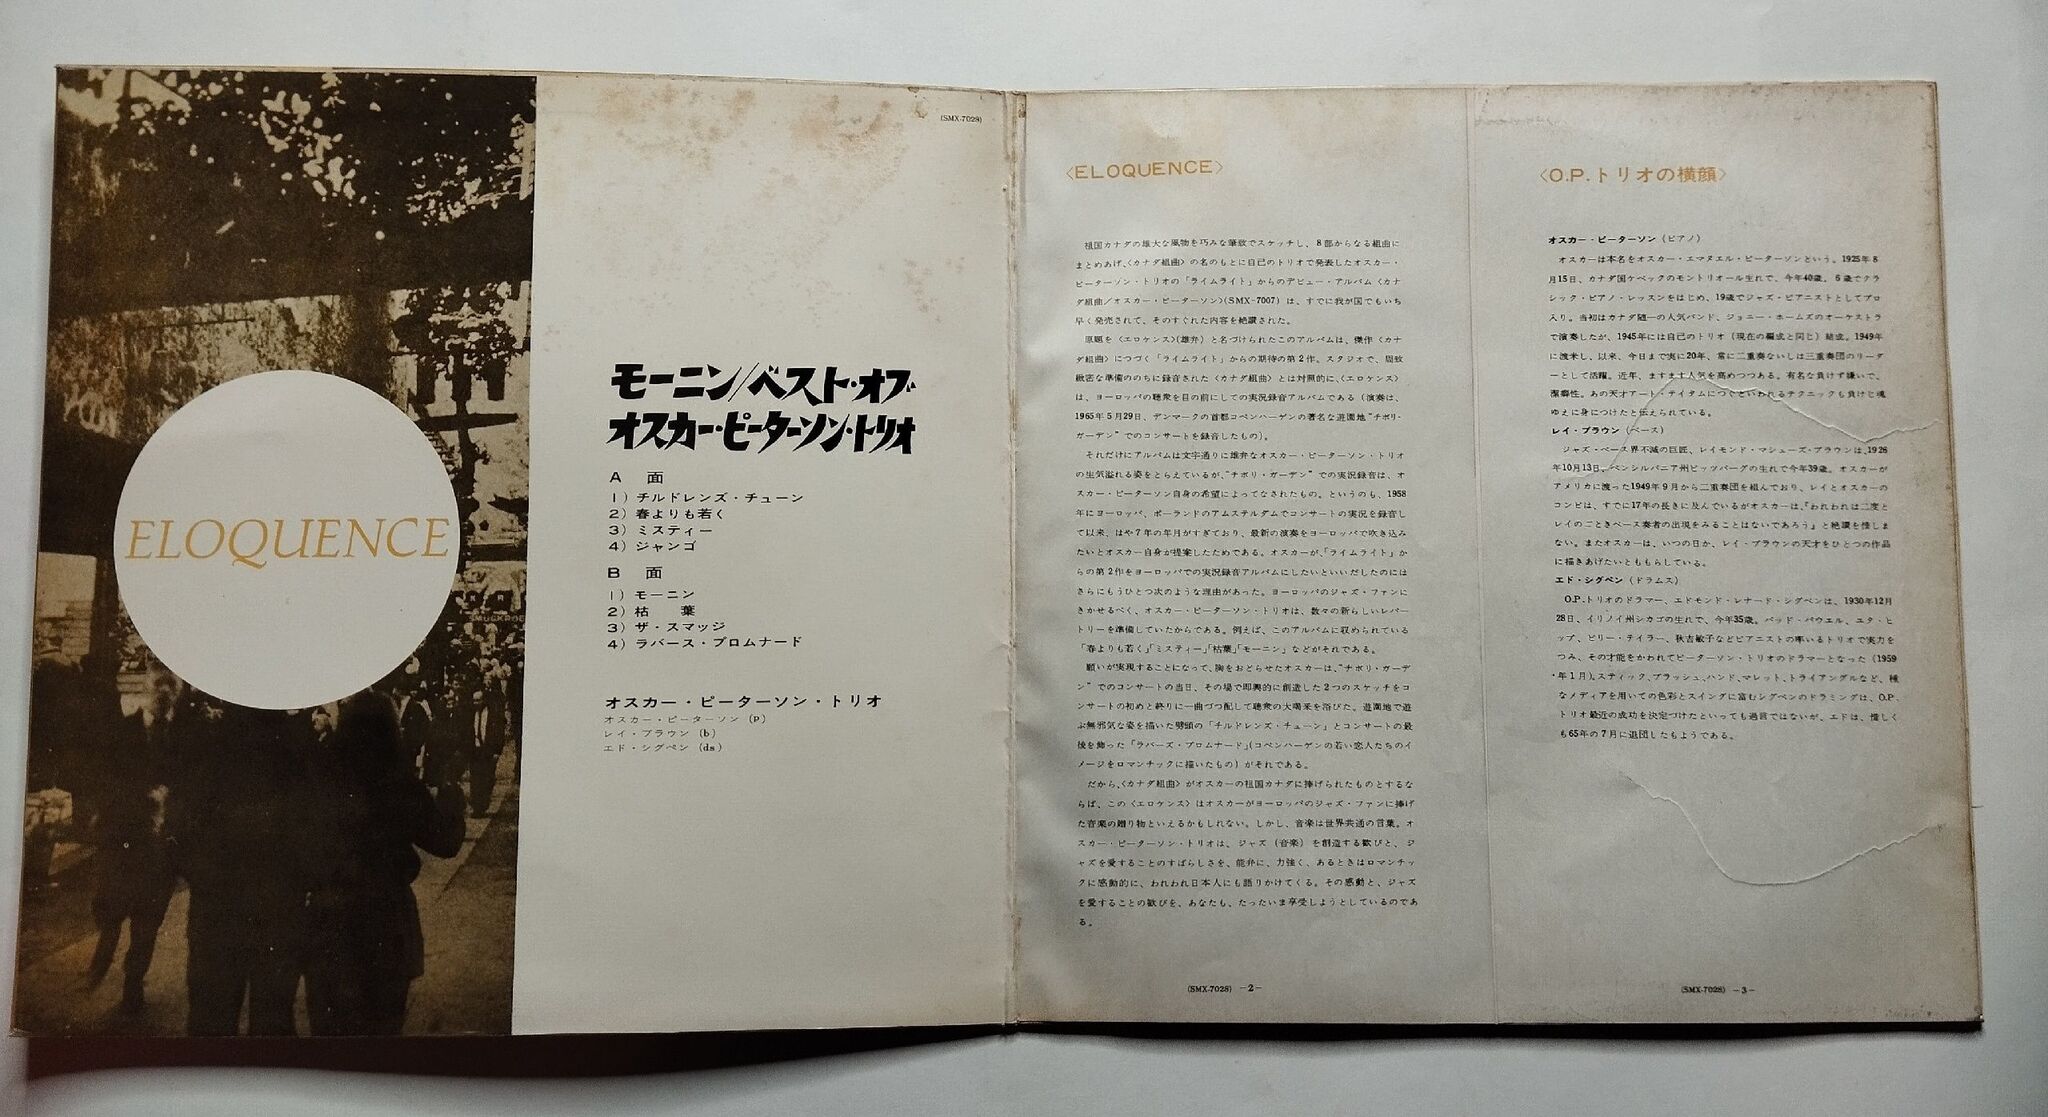 ELOQUENCE
(SMX-7028)
モーニン/ベスト・オブ
オスカー・ピーターソン・トリオ
A 面
1) チルドレンズ・チューン
2) 春よりも若く
3) ミスティー
4) ジャンゴ
B 面
1) モーニン
2) 枯 葉
3) ザ・スマッジ
4) ラバース・プロムナード
オスカー・ピーターソン・トリオ
オスカー・ピーターソン (p)
レイ・ブラウン (b)
エド・シグペン (ds)
〈ELOQUENCE〉
祖国カナダの雄大な風物を巧みな筆致でスケッチし、8部からなる組曲に
まとめあげ、〈カナダ組曲〉の名のもとに自己のトリオで発表したオスカー・
ピーターソン・トリオの「ライムライト」からのデビュー・アルバム〈カナ
ダ組曲/オスカー・ピーターソン〉(SMX-7007) は、すでに我が国でもいち
早く発売されて、そのすぐれた内容を絶讃された。
原題を〈エロケンス〉(雄弁) と名づけられたこのアルバムは、傑作〈カナ
ダ組曲〉につづく「ライムライト」からの期待の第2作。スタジオで、周致
緻密な準備ののちに録音された〈カナダ組曲〉とは対照的に、〈エロケンス〉
は、ヨーロッパの聴衆を目の前にしての実況録音アルバムである (演奏は、
1965年5月29日、デンマークの首都コペンハーゲンの著名な遊園地"チボリ・
ガーデン"でのコンサートを録音したもの)。
それだけにアルバムは文字通りに雄弁なオスカー・ピーターソン・トリオ
の生気溢れる姿をとらえているが、"チボリ・ガーデン"での実況録音は、オ
スカー・ピーターソン自身の希望によってなされたもの。というのも、1958
年にヨーロッパ、ポーランドのアムステルダムでコンサートの実況を録音し
て以来、はや7年の年月がすぎており、最新の演奏をヨーロッパで吹き込み
たいとオスカー自身が提案したためである。オスカーが、「ライムライト」か
らの第2作をヨーロッパでの実況録音アルバムにしたいといいだしたのには
さらにもうひとつ次のような理由があった。ヨーロッパのジャズ・ファンに
きかせるべく、オスカー・ピーターソン・トリオは、数々の新らしいレパー
トリーを準備していたからである。例えば、このアルバムに収められている
「春よりも若く」「ミスティー」「枯葉」「モーニン」などがそれである。
願いが実現することになって、胸をおどらせたオスカーは、"チボリ・ガーデ
ン"でのコンサートの当日、その場で即興的に創造した2つのスケッチをコ
ンサートの初めと終りに一曲づつ配して聴衆の大喝采を浴びた。遊園地で遊
ぶ無邪気な姿を描いた劈頭の「チルドレンズ・チューン」とコンサートの最
後を飾った「ラバーズ・プロムナード」(コペンハーゲンの若い恋人たちのイ
メージをロマンチックに描いたもの) がそれである。
だから、〈カナダ組曲〉がオスカーの祖国カナダに捧げられたものとするな
らば、この〈エロケンス〉はオスカーがヨーロッパのジャズ・ファンに捧げ
た音楽の贈り物といえるかもしれない。しかし、音楽は世界共通の言葉。オ
スカー・ピーターソン・トリオは、ジャズ (音楽) を創造する歓びと、ジ
ャズを愛することのすばらしさを、能弁に、力強く、あるときはロマンチッ
クに感動的に、われわれ日本人にも語りかけてくる。その感動と、ジャズ
を愛することの歓びを、あなたも、たったいま享受しようとしているのであ
る。
(SMX-7028) −2−
〈O.P.トリオの横顔〉
オスカー・ピーターソン (ピアノ)
オスカーは本名をオスカー・エマヌエル・ピーターソンという。1925年8
月15日、カナダ国ケベックのモントリオール生れで、今年40歳。6歳でクラ
シック・ピアノ・レッスンをはじめ、19歳でジャズ・ピアニストとしてプロ
入り。当初はカナダ随一の人気バンド、ジョニー・ホームズのオーケストラ
で演奏したが、1945年には自己のトリオ (現在の編成と同じ) 結成。1949年
に渡米し、以来、今日まで実に20年、常に二重奏ないしは三重奏団のリーダ
ーとして活躍。近年、ますます人気を高めつつある。有名な負けず嫌いで、
潔癖性。あの天才アート・テイタムにつぐといわれるテクニックも負けじ魂
ゆえに身につけたと伝えられている。
レイ・ブラウン (ベース)
ジャズ・ベース界不滅の巨匠、レイモンド・マシューズ・ブラウンは、1926
年10月13日、ペンシルバニア州ピッツバーグの生れで今年39歳。オスカーが
アメリカに渡った1949年9月から二重奏団を組んでおり、レイとオスカーの
コンビは、すでに17年の長きに及んでいるがオスカーは、「われわれは二度と
レイのごときベース奏者の出現をみることはないであろう」と絶讃を惜しま
ない。またオスカーは、いつの日か、レイ・ブラウンの天才をひとつの作品
に描きあげたいともらしている。
エド・シグペン (ドラムス)
O.P.トリオのドラマー、エドモンド・レナード・シグペンは、1930年12月
28日、イリノイ州シカゴの生れで、今年35歳。バッド・パウエル、ユタ・ヒ
ップ、ビリー・テイラー、秋吉敏子などピアニストの率いるトリオで実力を
つみ、その才能をかわれてピーターソン・トリオのドラマーとなった (1959
年1月)。スティック、ブラッシュ、ハンド、マレット、トライアングルなど、種
なメディアを用いての色彩とスイングに富むシグペンのドラミングは、O.P.
トリオ最近の成功を決定づけたといっても過言ではないが、エドは、惜しく
も65年の7月に退団したもようである。
(SMX-7028) −3−